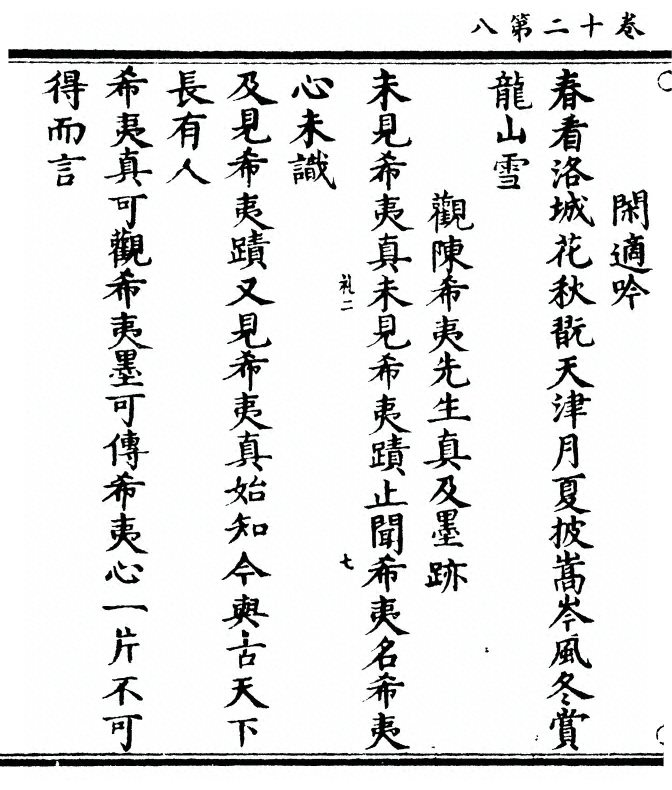 卷十二第八
閑適吟
春看洛城花秋翫天津月夏披嵩岑風冬賞
龍山雪
觀陳希夷先生真及墨跡
未見希夷真未見希夷蹟止聞希夷名希夷
心未識
礼二
七
及見希夷蹟又見希夷真始知今與古天下
長有人
希夷真可觀希夷墨可傳希夷心一片不可
得而言